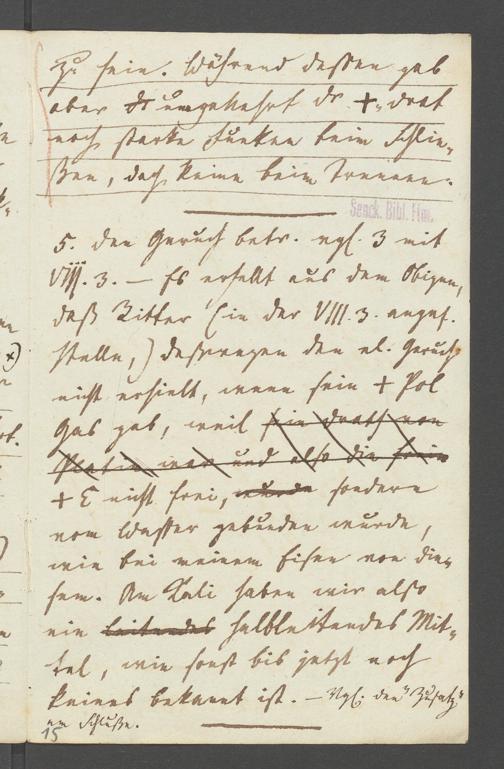 zu sein. Während dessen gab
aber umgekehrt dr +-drat
noch starke Funken beim Schlie-
ßen, doch keine beim Trennen.
Senck. Bibl. Ffm.
5. den Geruch betr. vgl. 3 mit
VIII. 3. — Es erhellt aus dem Obigen,
daß Ritter (in der VIII. 3. angef.
Stelle,) deswegen den el. Geruch
nicht erhielt, wenn sein + Pol
Gas gab, weil sein Drath von
Platin war und also die freie
+ E nicht frei, wurde sondern
vom Wasser gebunden wurde,
wie bei meinem Eisen von die-
sem. Am Kali haben wir also
ein leitendes halbleitendes Mit-
tel, wie sonst bis jetzt noch
keines bekannt ist. — Vgl. den "Zusatz"
am Schluße.
15